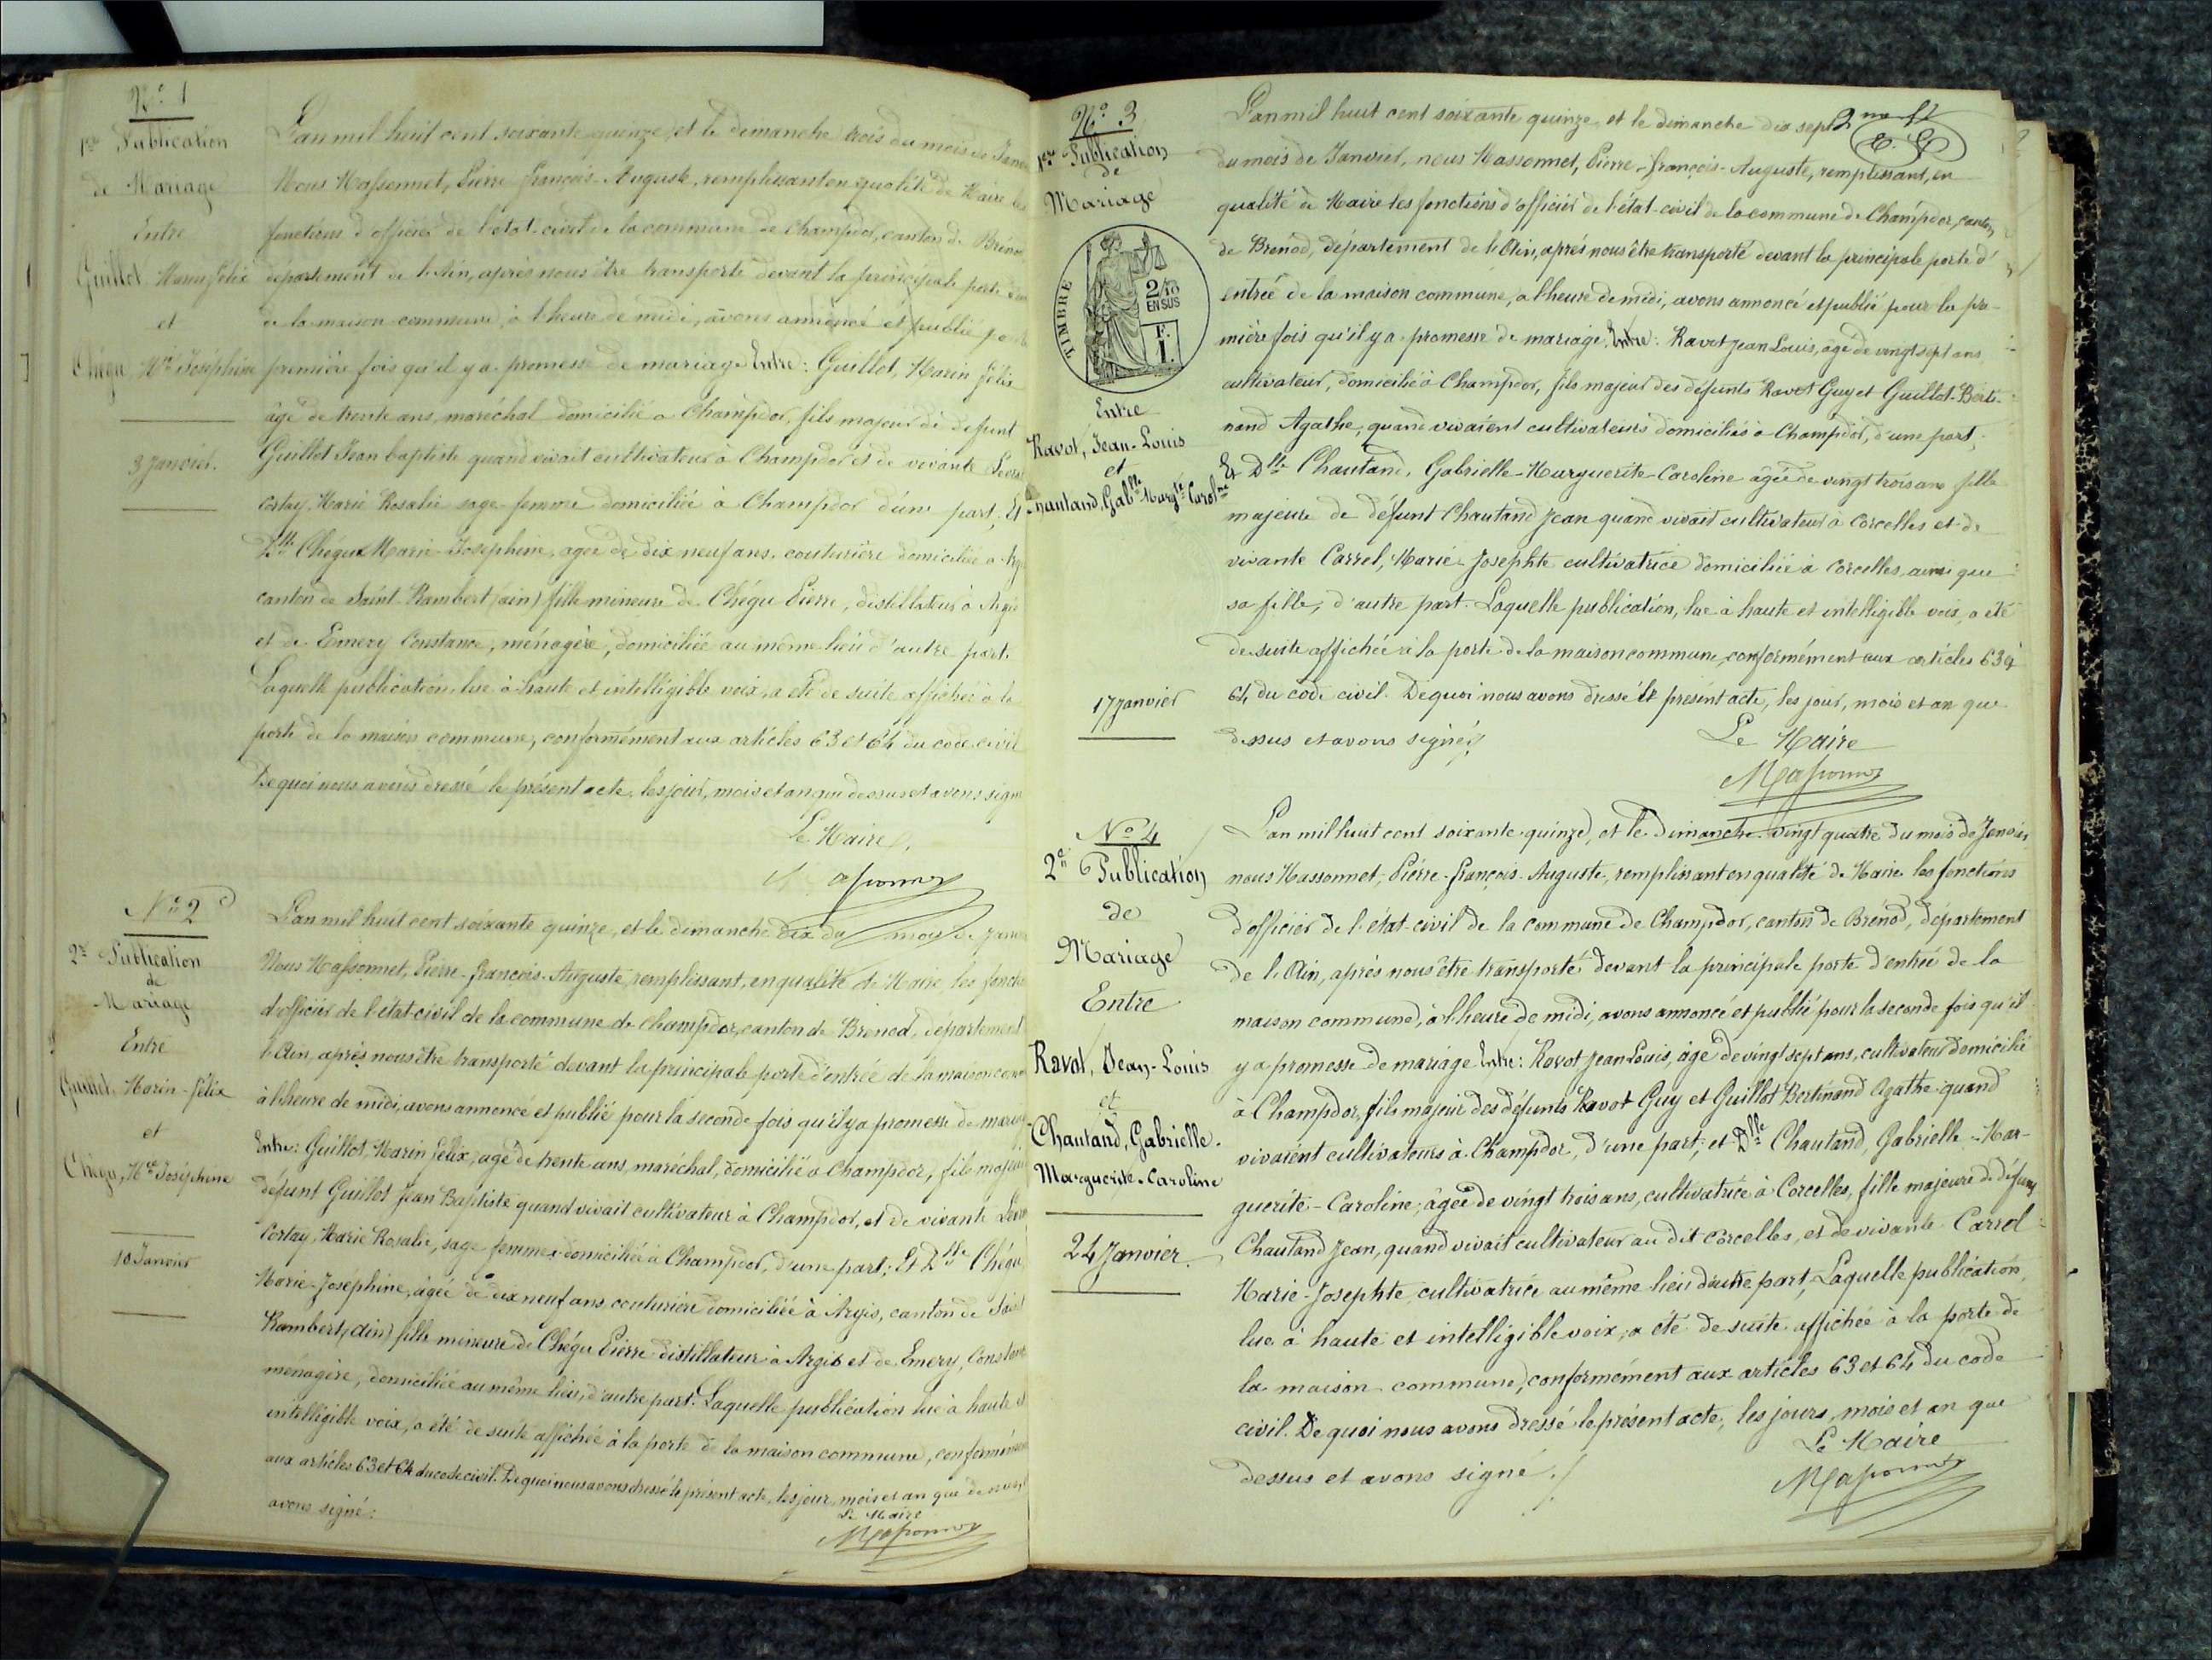 N° 1
1re Publication
de Mariage
Entre
Guillot Marin Félix
et
Chégu, Mie Joséphine
3 Janvier.
L'an mil huit cent soixante quinze, et le dimanche trois du mois de Janv
Nous Massonnet, Pierre François-Auguste, remplissant en qualité de Maire les
fonctions d'officier de l'état-civil de la commune de Champdor, canton de Brénod
département de l'Ain, après nous être transporté devant la principale porte d'en
de la maison commune, à l'heure de midi, avons annoncé et publié pour la
première fois qu'il y a promesse de mariage Entre : Guillot, Marin Félix
âgé de trente ans, maréchal domicilié à Champdor, fils majeur de défunt
Guillot Jean baptiste quand vivait cultivateur à Champdor et de vivante
Cortay, Marie Rosalie sage femme domiciliée à Champdor d'une part, Et
Dlle Chégu Marie Joséphine, agée de dix neuf ans, couturière domiciliée à Arg
canton de Saint-Rambert (ain) fille mineure de Chégu Pierre, distillateur à Argis
et de Emery Constance, ménagère, domiciliée au même lieu d'autre part.
Laquelle publication, lue à haute et intelligible voix, a été de suite affichée à la
porte de la maison commune, conformément aux articles 63 et 64 du code civil
De quoi nous avons dressé le présent acte, les jour, mois et an que dessus et avons signé
Le Maire
N° 2
2e Publication
de
Mariage
Entre
Guillot, Marin-Félix
et
Chégu, Mie Joséphine
10 Janvier
L'an mil huit cent soixante quinze, et le dimanche dix du mois de Janv
Nous Massonnet, Pierre-François-Auguste, remplissant, en qualité de Maire, les foncti
d'officier de l'état-civil de la commune de Champdor, canton de Brenod, département
l'Ain, après nous être transporté devant la principale porte d'entrée de la maison com
à l'heure de midi, avons annoncé et publié pour la seconde fois qu'il y a promesse de mariag
Entre : Guillot, Marin Félix, agé de trente ans, maréchal, domicilié à Champdor, fils majeur
défunt Guillot Jean Baptiste quand vivait cultivateur à Champdor, et de vivante
Cortay, Marie Rosalie, sage femme domiciliée à Champdor, d'une part ; Et Dlle Chégu
Marie-Joséphine, âgée de dix neuf ans couturière domiciliée à Argis, canton de Saint
Rambert, (ain) fille mineure de Chégu Pierre distillateur à Argis et de Emery, Constance
ménagère, domiciliée au même lieu, d'autre part. Laquelle publication lue à haute et
intelligible voix, a été de suite affichée à la porte de la maison commune, conformément
aux articles 63 et 64 du code civil. De quoi nous avons dressé le présent acte, les jour, mois et an que dessus, et
avons signé :
Le Maire
Massonnet
N° 3
1ere Publication
de
Mariage
TIMBRE
2/10
EN SUS
F.
1.
Entre
Ravot, Jean-Louis
et
Chautand, Gablle Margte Carolne
17 janvier
2
E. G
L'an mil huit cent soixante quinze, et le dimanche dix sept
du mois de Janvier, nous Massonnet, Pierre-François-Auguste, remplissant, en
qualité de Maire les fonctions d'officier de l'état-civil de la commune de Champdor, canton
de Brénod, département de l'Ain, après nous être transporté devant la principale porte d'
entrée de la maison commune, à l'heure de midi, avons annoncé et publié pour la pre-
mière fois qu'il y a promesse de mariage. Entre : Ravot Jean Louis, agé de vingt sept ans
cultivateur, domicilié à Champdor, fils majeur des défunts Ravot Guy et Guillot-Berti-
nand Agathe, quand vivaient cultivateurs domiciliés à Champdor, d'une part ;
Et Dlle Chautand, Gabrielle-Marguerite-Caroline âgée de vingt trois ans fille
majeure de défunt Chautand Jean quand vivait cultivateur à Corcelles et de
vivante Carrel, Marie-Josephte cultivatrice domiciliée à Corcelles, ainsi que
sa fille, d'autre part. Laquelle publication, lue à haute et intelligible voix, a été
de suite affichée à la porte de la maison commune, conformément aux articles 63 &
64 du code civil. De quoi nous avons dressé le présent acte, les jour, mois et an que
dessus et avons signé
Le Maire
Massonnet
N° 4
2e Publication
de
Mariage
Entre
Ravot, Jean-Louis
et
Chautand, Gabrielle-
Marguerite-Caroline
24 Janvier.
L'an mil huit cent soixante-quinze, et le dimanche vingt quatre du mois de Janvier
nous Massonnet, Pierre-François-Auguste, remplissant en qualité de Maire les fonctions
d'officier de l'état-civil de la commune de Champdor, canton de Brénod, département
de l'Ain, après nous être transporté devant la principale porte d'entrée de la
maison commune, à l'heure de midi, avons annoncé et publié pour la seconde fois qu'il
y a promesse de mariage Entre : Ravot Jean Louis, âgé de vingt sept ans, cultivateur domicilié
à Champdor, fils majeur des défunts Ravot Guy et Guillot Bertinand Agathe quand
vivaient cultivateurs à Champdor, d'une part, et Dlle Chautand, Gabrielle-Mar-
guerite-Caroline, âgée de vingt trois ans, cultivatrice à Corcelles, fille majeure de défunt
Chautand Jean, quand vivait cultivateur au dit Corcelles, et de vivante Carrel
Marie-Josephte, cultivatrice au même lieu d'autre part, Laquelle publication,
lue à haute et intelligible voix, a été de suite affichée à la porte de
la maison commune, conformément aux articles 63 et 64 du code
civil. De quoi nous avons dressé le présent acte, les jours, mois et an que
dessus et avons signé ./
Le Maire
Massonnet